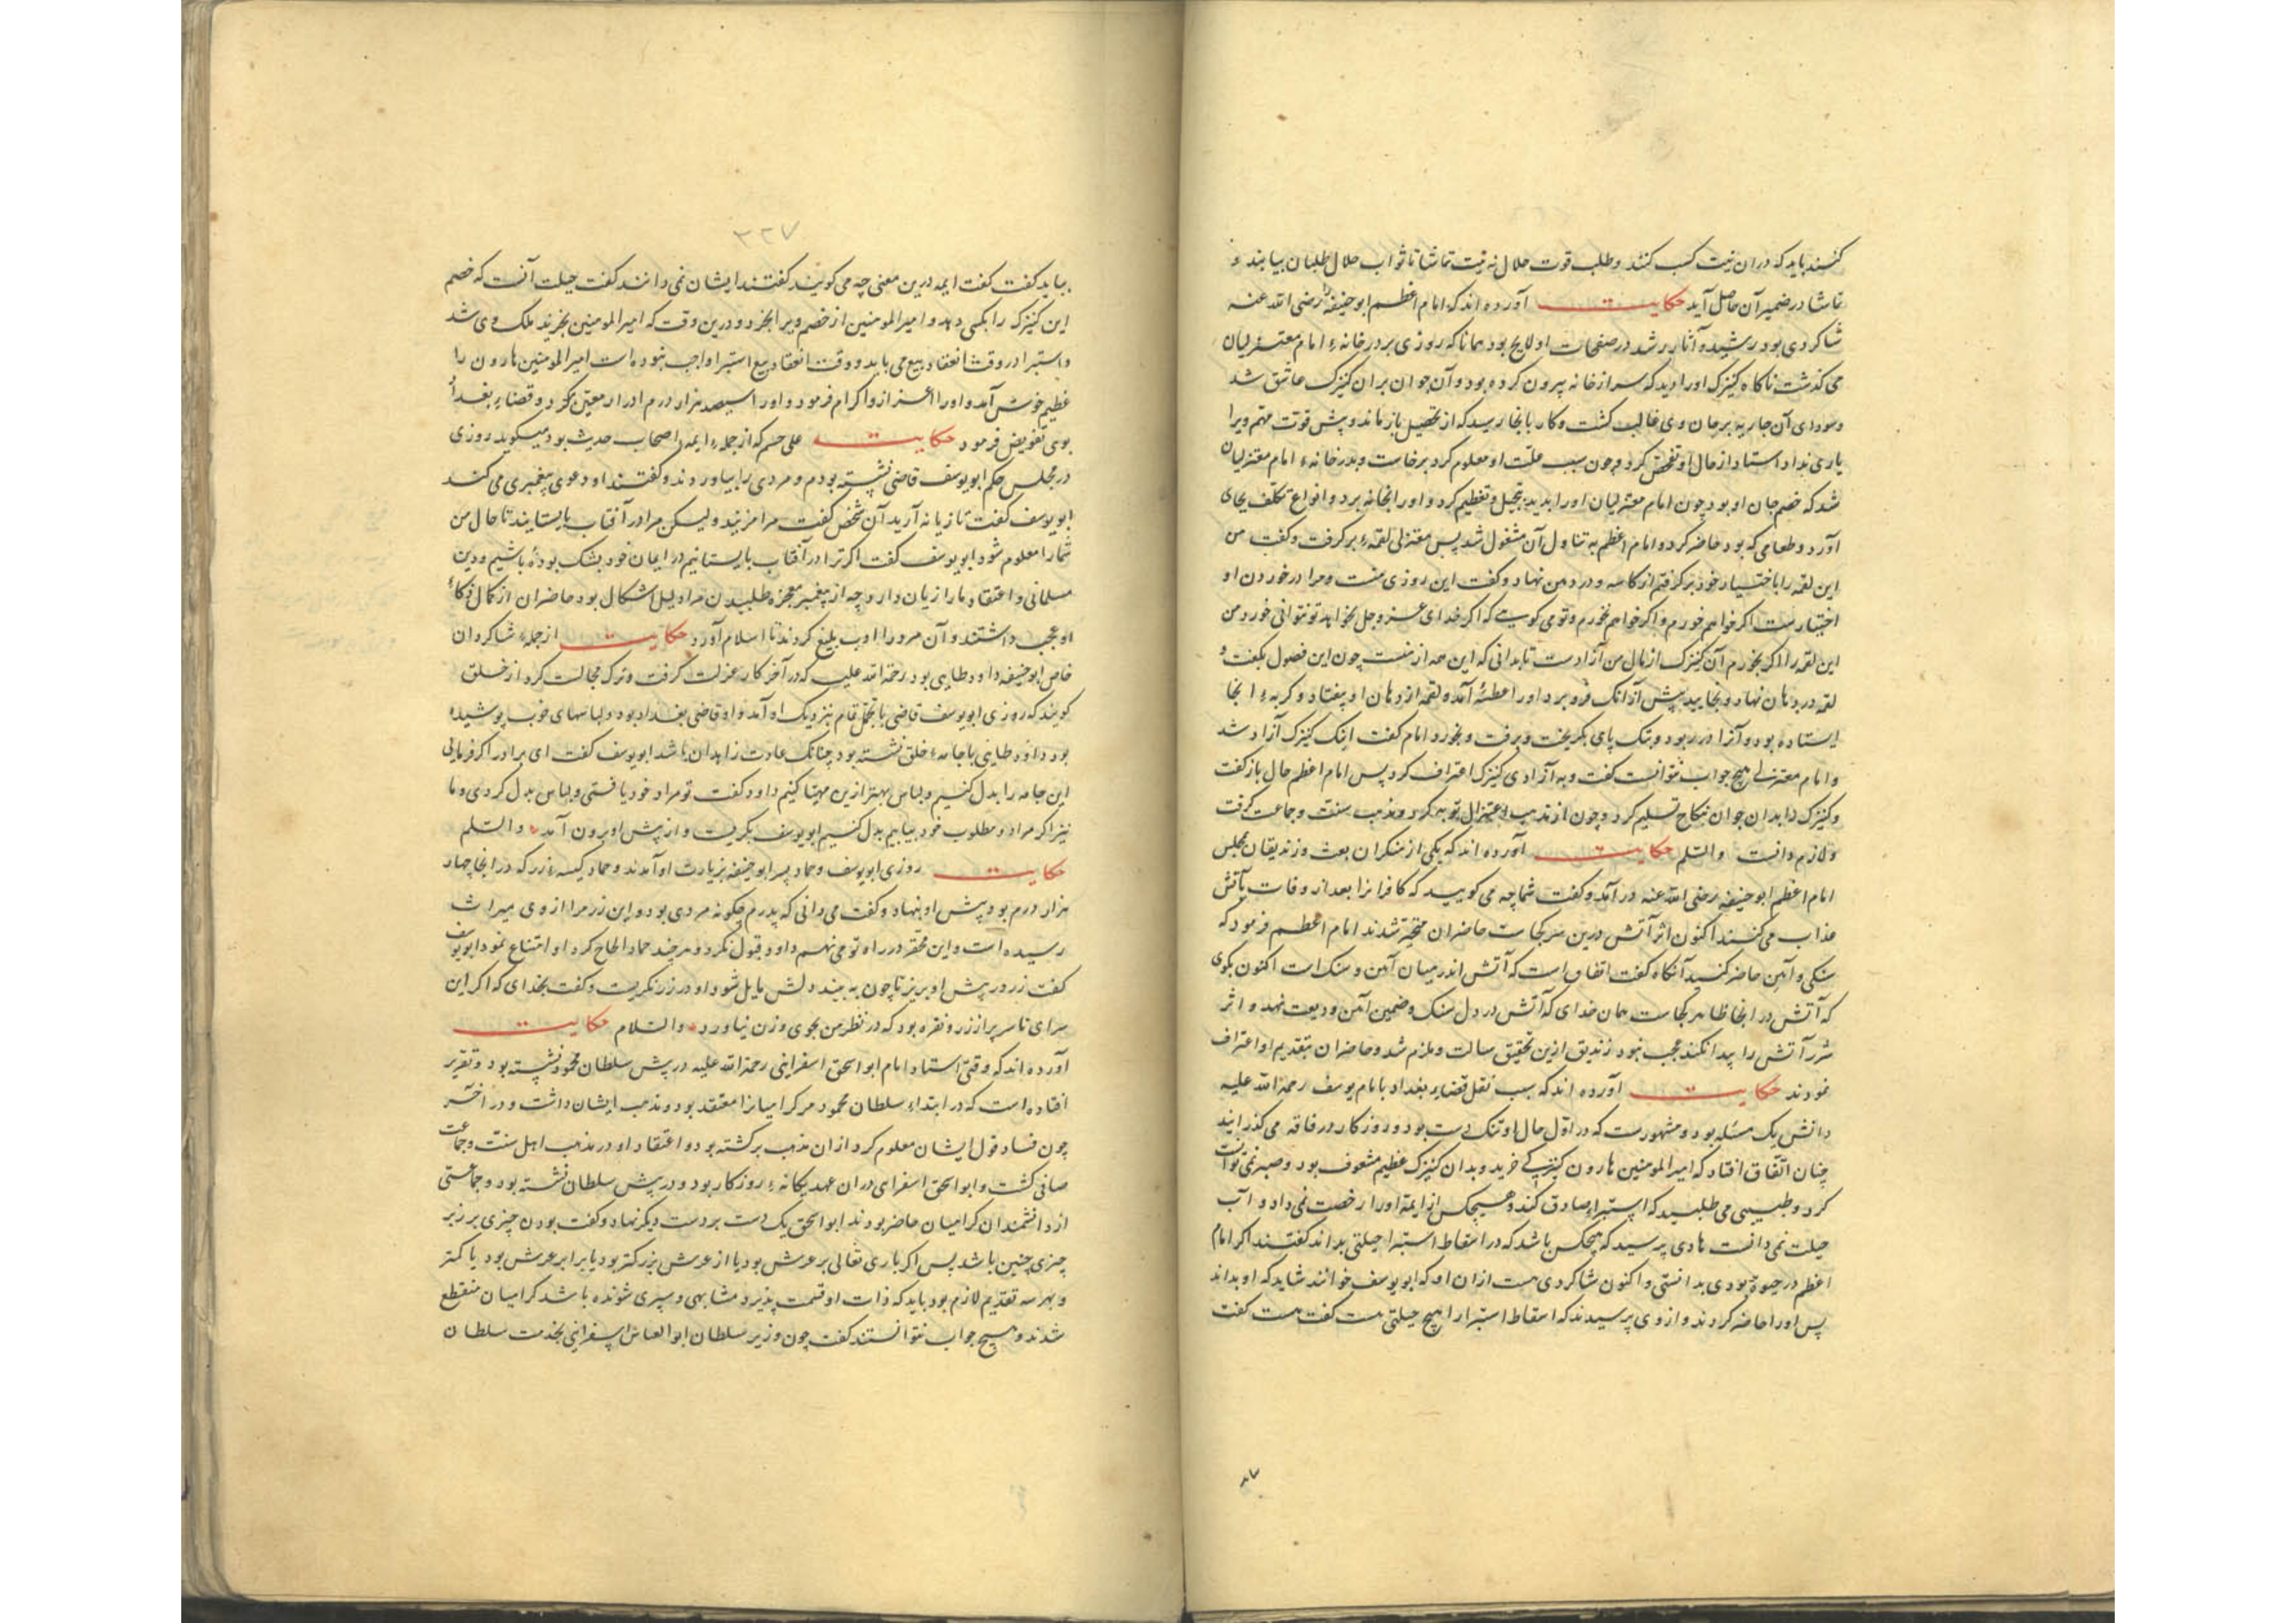 کنند باید که دران نیت کسب کنند و طلب قوت حلال نه نیت تماشا تا ثواب حلال طلبان بیابند و
تماشا در ضمیر آن حاصل آید حکایت آورده اند که امام اعظم ابوحنیفه را رضی الله عنه
شاکردی بود رشید و آثار رشد در صفحات او لایح بود همانا که روزی بر در خانهء امام معتزلیان
می کذشت ناکاه کنیزک او را دید که سر از خانه بیرون کرده بود و آن جوان بران کنیزک عاشق شد
و سودای آن جاریه بر جان وی غالب کشت و کار بانجا رسید که از تحصیل باز ماند و پیش قوت متهم ویرا
یاری نداد استاد از حال او تفحص کرد و چون سبب علت او معلوم کرد برخاست و بدر خانهء امام معتزلیان
شد که خصم جان او بود چون امام معتزلیان او را بدید تبجیل و تعظیم کرد و او را بخانه برد و انواع تکلف بجای
آورد و طعامی که بود حاضر کرد و امام اعظم به تناول آن مشغول شد پس معتزلی لقمهء برکرفت و کفت من
این لقمه را باختیار خود برکرفتم از کاسه و در دهن نهاد و کفت این روزی منست و مرا در خوردن او
اختیارست اکر خواهم خورم و اکر خواهم نخورم و تو می کویی که اکر خدای عز و جل نخواهد تو نتوانی خورد من
این لقمه را اکر بخورم آن کنیزک از مال من آزادست تا بدانی که این همه از منست چون این فصول بکفت و
لقمه در دهان نهاد و بخایید پیش از آنک فرو برد او را عطسهٔ آمد و لقمه از دهان او بیفتاد و کربهء انجا
ایستاده بود و آنرا در ربود و بتک پای بکریخت و برفت و بخورد امام کفت اینک کنیزک آزاد شد
و امام معتزلی هیچ جواب نتوانست کفت و به آزادی کنیزک اعتراف کرد پس امام اعظم حال باز کفت
و کنیزک را بدان جوان بنکاح تسلیم کرد و چون از مذهب اعتزال توبه کرد و مذهب سنت و جماعت کرفت
و لازم دانست والسلم حکایت آورده اند که یکی از منکران بعث و زندیقان بمجلس
امام اعظم ابوحنیفه رضی الله عنه در آمد و کفت شما چه می کویید که کافرانرا بعد از وفات بآتش
عذاب می کنند اکنون اثر آتش درین سر کجاست حاضران متحیر شدند امام اعظم فرمود که
سنکی و آهن حاضر کنید آنکاه کفت اتفاق است که آتش اندر میان آهن و سنک است اکنون بکوی
که آتش در اینجا ظاهر کجاست همان خدای که آتش در دل سنک و ضمین آهن ودیعت نهد و اثر
شرر آتش را پیدا نکند عجب نبود زندیق ازین تحقیق ساکت و ملزم شد و حاضران بتقدیم او اعتراف
نمودند حکایت آورده اند که سبب نقل قضاء بغداد بامام یوسف رحمة الله علیه
دانش یک مسئله بود و مشهورست که در اول حال او تنک دست بود و روزکار در فاقه می کذرانید
چنان اتفاق افتاد که امیر المومنین هارون کنیزکی خرید و بدان کنیزک عظیم مشعوف بود و صبر نمی توانست
کرد و طبیبی می طلبید که استبراء صادق کند و هیچکس از ایمه او را رخصت نمی داد و آب
حیلت نمی دانست هادی پرسید که هیچکس باشد که در اسقاط استبرا حیلتی بداند کفتند اکر امام
اعظم در حیوة بودی بدانستی و اکنون شاکردی هست ازان او که ابویوسف خوانند شاید که او بداند
پس او را حاضر کردند و از وی پرسیدند که اسقاط استبرا را هیچ حیلتی هست کفت هست کفت
۳۲۷
بباید کفت کفت ایمه درین معنی چه می کویند کفتند ایشان نمی دانند کفت حیلت آنست که خصم
این کنیزک را بکسی دهد و امیر المومنین از خصم ویرا بخرد و درین وقت که امیر المومنین بخرید ملک وی شد
و استبرا در وقت انعقاد بیع می باید و وقت انعقاد بیع استبرا واجب نبوده است امیر المومنین هارون را
عظیم خوش آمد و او را اعزاز و اکرام فرمود و او را سیصد هزار درم ادرار معین کرد و قضاء بغداد
بوی تفویض فرمود حکایت علی حسر که از جملهء ایمه اصحاب حدیث بود میکوید روزی
در مجلس حکم ابویوسف قاضی نشسته بودم و مردی را بیاوردند و کفتند او دعوی پیغمبری می کند
ابویوسف کفت تازیانه آرید آن شخص کفت مرا مزنید ولیکن مرا در آفتاب بایستانید تا حال من
شما را معلوم شود ابویوسف کفت اکر ترا در آفتاب بایستانیم در ایمان خود بشک بودهٔ باشیم و دین
مسلمانی و اعتقاد ما را زیان دارد چه از پیغمبر معجزه طلبیدن مرا دلیل اشکال بود حاضران از کمال ذکاء
او عجب داشتند و آن مرد را ادب بلیغ کردند تا اسلام آورد حکایت از جملهء شاکردان
خاص ابوحنیفه داود طایی بود رحمة الله علیه که در آخر کار عزلت کرفت و ترک مجالست کرد از خلق
کویند که روزی ابویوسف قاضی با تجمل تمام بنزدیک او آمد و او قاضی بغداد بود و لباسهای خوب پوشیده
بود داود طایی با جامهء خلق نشسته بود چنانک عادت زاهدان باشد ابویوسف کفت ای برادر اکر فرمایی
این جامه را بدل کنیم و لباس بهتر ازین مهیا کنیم داود کفت تو مراد خود یافتی و لباس بدل کردی و ما
نیز اکر مراد و مطلوب خود بیابیم بدل کنیم ابویوسف بکریست و از پیش او برون آمد والسلم
حکایت روزی ابویوسف و حماد پسر ابوحنیفه بزیارت او آمدند و حماد کیسهء زر که در انجا چهار
هزار درم بود پیش او بنهاد و کفت می دانی که پدرم چکونه مردی بود و این زر مرا از وی میراث
رسیده است و این محقر در راه تو می نهم داود قبول نکرد و هر چند حماد الحاح کرد او امتناع نمود ابویوسف
کفت زر در پیش او بریز تا چون به بیند دلش مایل شود او در زر نکریست و کفت بخدای که اکر این
سرای تا سر پر از زر و نقره بود که در نظر من بجوی وزن نیاورد والسلام حکایت
آورده اند که وقتی استاد امام ابو اسحق اسفراینی رحمة الله علیه در پیش سلطان محمود نشسته بود و تقریر
افتاده است که در ابتداء سلطان محمود مر کرامیانرا معتقد بود و مذهب ایشان داشت و در آخر
چون فساد قول ایشان معلوم کرد ازان مذهب برکشته بود و اعتقاد او در مذهب اهل سنت و جماعت
صافی کشت و ابو اسحق اسفراینی دران عهد یکانهء روزکار بود و در پیش سلطان نشسته بود و جماعتی
از دانشمندان کرامیان حاضر بودند ابو اسحق یک دست بر دست دیکر نهاد و کفت بودن چیزی بر زبر
چیزی چنین باشد پس اکر باری تعالی بر عرش بود یا از عرش بزرکتر بود یا برابر عرش بود یا کمتر
و بهر سه تقدیم لازم بود باید که ذات او قسمت پذیرد مشابهی و سپری شونده باشد کرامیان منقطع
شدند و هیچ جواب نتوانستند کفت چون وزیر سلطان ابو العباس اسفراینی بخدمت سلطان